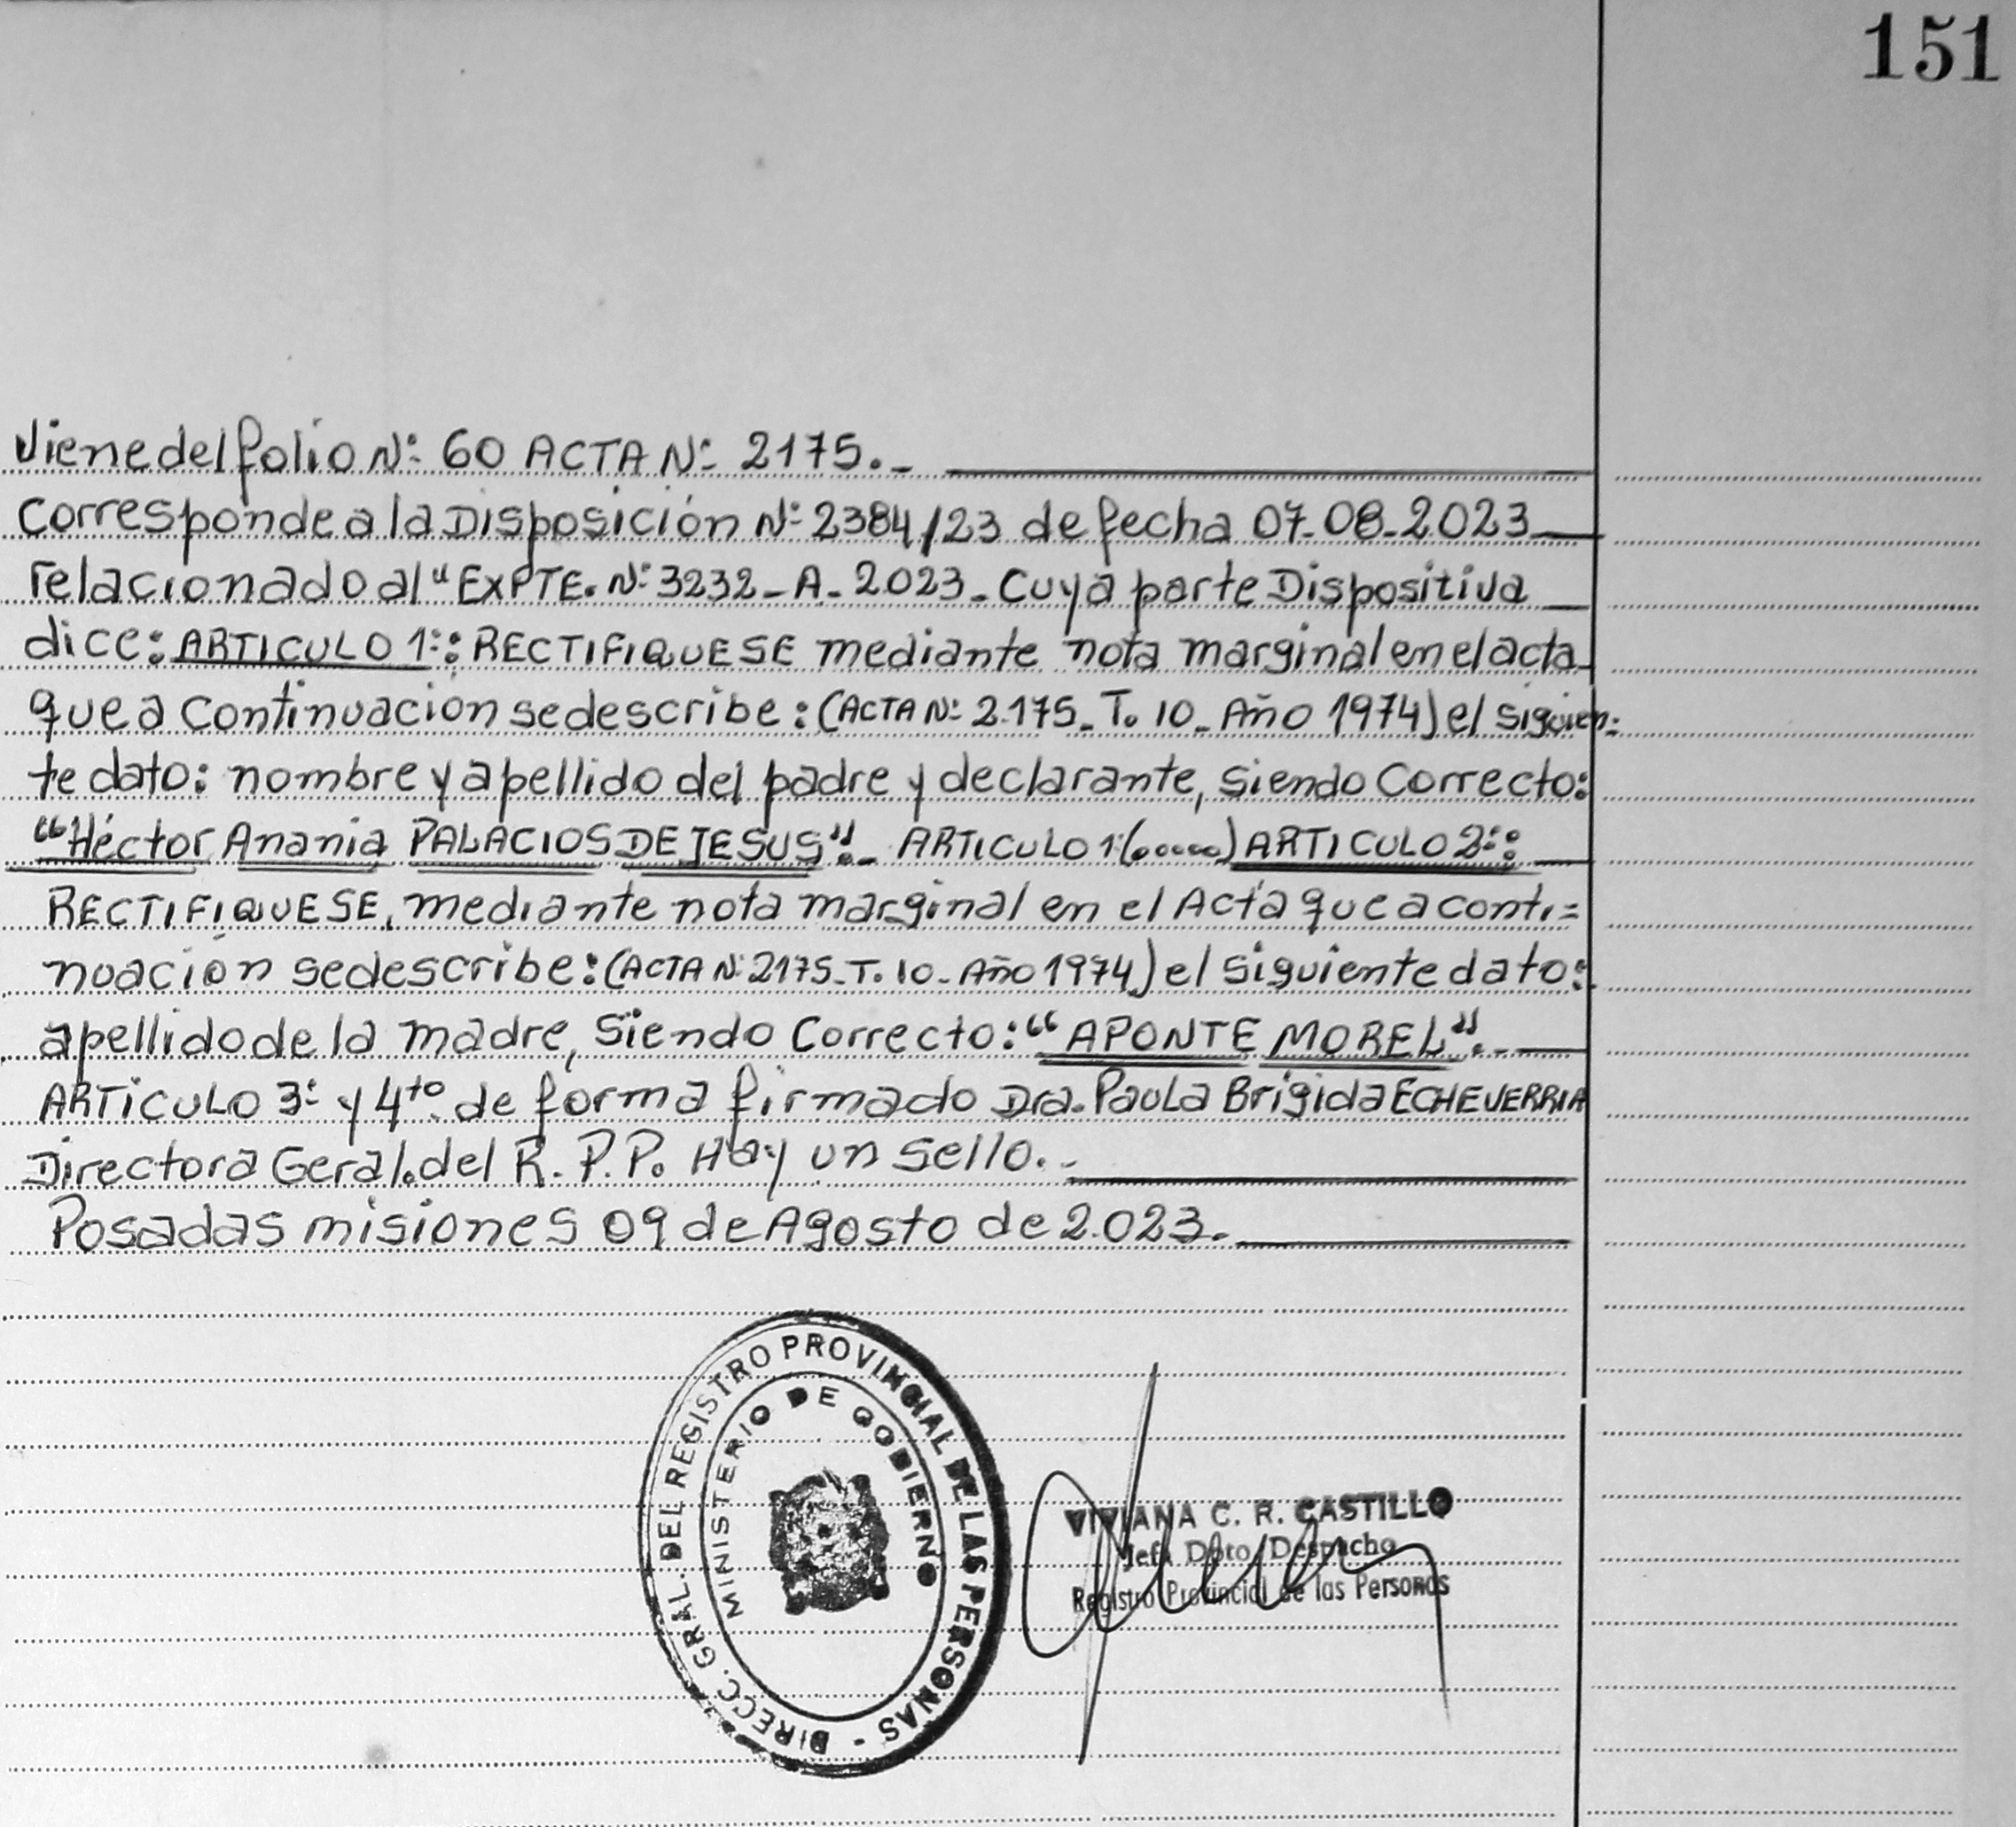 151
Viene del folio Nº: 60 ACTA Nº: 2175.-
Corresponde a la Disposición Nº: 2384/23 de fecha 07-08-2023
relacionado al "EXPTE. Nº: 3232-A-2023- Cuya parte Dispositiva
dice: ARTICULO 1º: RECTIFIQUESE mediante nota marginal en el acta
que a continuacion se describe: (ACTA Nº: 2.175-T. 10-Año 1974) el siguien=
te dato: nombre y apellido del padre y declarante, siendo Correcto:
"Héctor Anania PALACIOS DE JESUS".- ARTICULO 1º(.....) ARTICULO 2º:
RECTIFIQUESE, mediante nota marginal en el Acta que a conti=
nuación se describe: (ACTA Nº: 2175-T. 10-Año 1974) el siguiente dato:
apellido de la madre, siendo Correcto: "APONTE MOREL".-
ARTICULO 3º y 4to. de forma firmado Dra. Paula Brigida ECHEVERRIA
Directora Geral. del R.P.P. Hay un sello.-
Posadas misiones 09 de Agosto de 2.023.
DIRECC. GRAL. DEL REGISTRO PROVINCIAL DE LAS PERSONAS -
MINISTERIO DE GOBIERNO
VIVIANA C. R. CASTILLO
Jefa Dpto. Despacho
Registro Provincial de las Personas